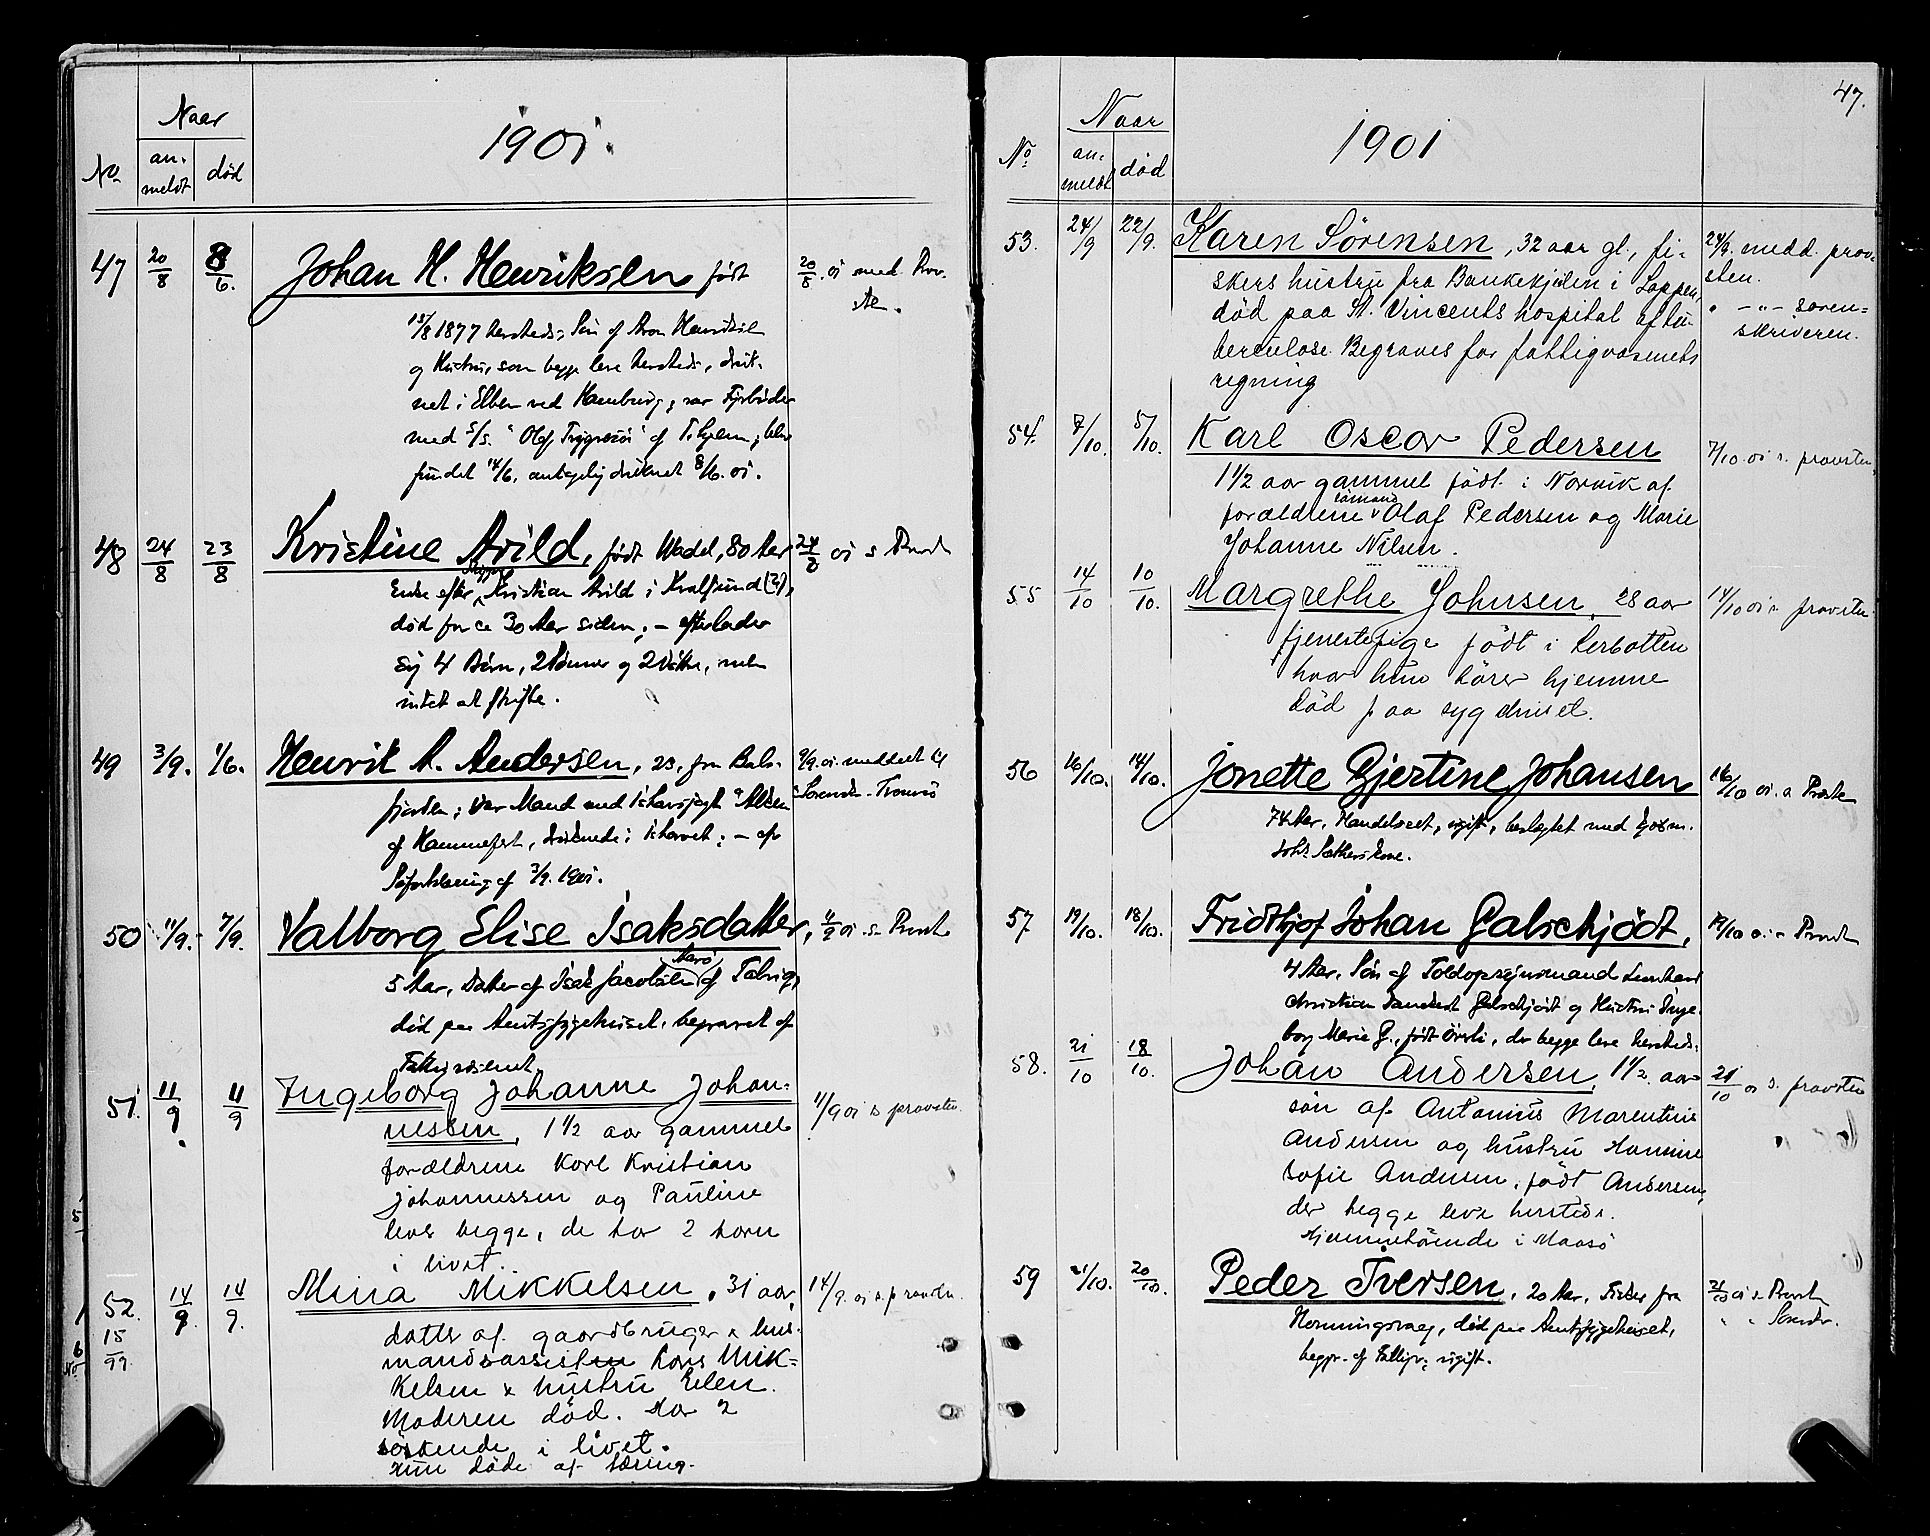 Naar
1901.
No an-meldt død
47 20/8 8/6. Johan H. Henriksen født 20/8. 01 med. Prov-
sten.
15/8 1877 hersteds; Søn af Aron Henriksen
og Hustru, som begge leve hersteds, druk-
net i Elben ved Hamburg; var Fyrbøder
med S/S. "Olaf Trygvesøn" af Tr.hjem; blev
fundet 14/6, antagelig druknet 8/6. 01.
48 24/8 23/8 Kristine Arild, født Wadel, 80 Aar 24/8 01 s Provst
Skipper
Enke efter Kristian Arild i Kvalsund (?),
død for ca 30 Aar siden; – efterlader
sig 4 Børn, 2 Sønner og 2 Døtre, men
intet at skifte.
49 3/9. 1/6. Henrik A. Andersen, 23, fra Bals- 9/9. 01 meddelt til
fjorden; var Mand med Ishavsjagt "Alken" Sorenskr. Tromsø
af Hammerfest, druknede i Ishavet; – efter
Søforklaring af 3/9. 1901.
50 11/9. 7/9. Valborg Elise Isaksdatter, 11/9 01 s. Provst
5 Aar, Datter af Isak Jacobsen af Talvig,
død paa Amtssygehuset, begravet af
Fattigvæsenet
51. 11/9 11/9 Ingeborg Johanne Johan- 11/9 01 s provsten.
nessen, 1 1/2 aar gammel
forældrene Karl Kristian
Johannessen og Pauline
lever begge, de har 2 barn
i livet.
52. 14/9 14/9. Mina Mikkelsen, 31 aar, 14/9. 01 s. provsten.
15/99
datter af gaardbruger & lens-
mandsassistent Lars Mik-
kelsen & hustru Elen.
Moderen død. Har 2
søskende i livet.
Hun døde af tæring.
47.
Naar
1901
No an-meldt død
53. 24/9 22/9. Karen Sørensen, 32 aar gl., fi- 24/9. medd. prov-
skers hustru fra Bankekjeilen i Loppen, sten.
død paa St. Vincents hospital af tu- " –"– soren-
berculose. Begraves for fattigvæsenets skriveren.
regning
54. 7/10. 5/10. Karl Oscar Pedersen 7/10. 01 s. provsten.
1 1/2 aar gammel født i Norvik af
sømand
forældrene Olaf Pedersen og Marie
Johanne Nilsen.
55 14/10 10/10. Margrethe Johnsen, 28 aar 14/10 01 s provsten.
tjenestepige født i Lerbotten
hvor hun hører hjemme
død paa sygehuset.
56 16/10. 14/10. Jonette Gjertine Johansen 16/10 01. s Provsten
74 Aar, Handelsret, ugift, beslægtet med Kjøbm.
Johs Sæthers Kone.
57. 19/10. 18/10. Fridthjof Johan Galschjödt, 19/10 01 s Provst
4 Aar. Søn af Toldopsynsmand Leonhard
Christian Galschjödt og Hustru Inge-
borg Marie G., født Øverli, der begge leve hersteds.
58. 21/10 18/10. Johan Andersen, 1 1/2 aar 21/10 01 s. provsten
søn af Antonius Marentius
Andersen og hustru Hansine
Sofie Andersen, født Andersen,
der begge leve hersteds.
Hjemmehørende i Maasø
59 21/10. 20/10. Peder Iversen, 20 Aar, Fisker fra 21/10 01 s. Provst
Honningsvaag, død paa Amtssygehuset, " " Sorenskr.
begr. af Fattigv; ugift.